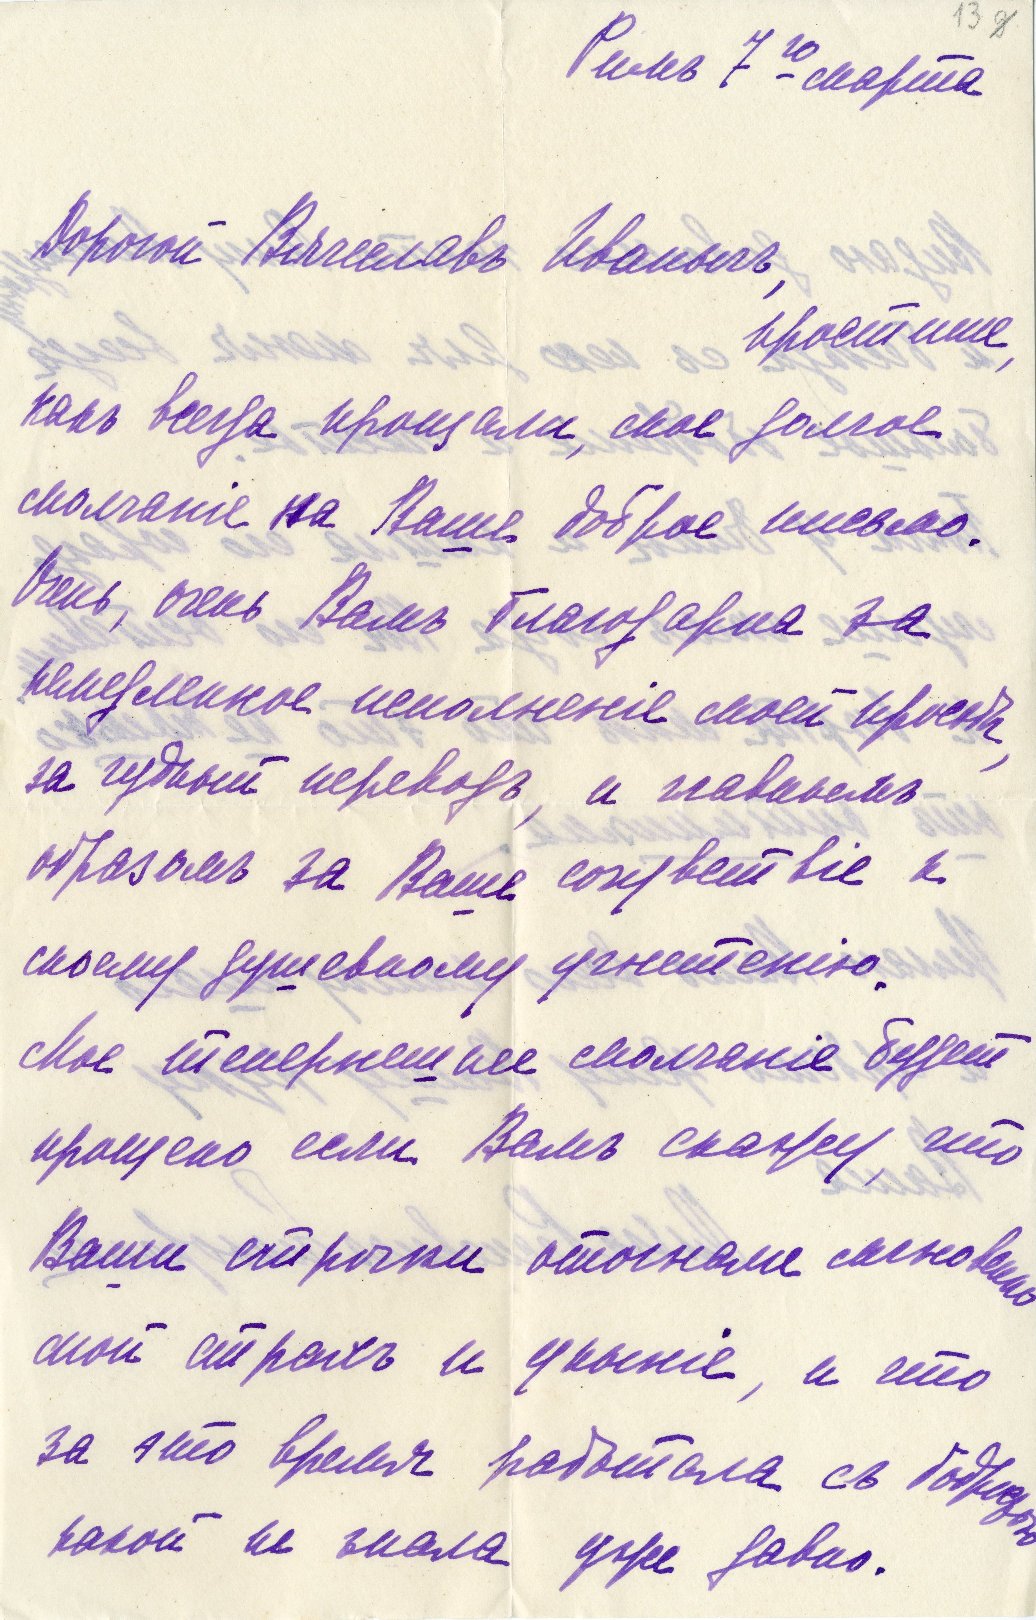 13
Римъ 7го марта
Дорогой Вячеславъ Иванычъ,
простите,
какъ всегда прощали, мое долгое
молчаніе на Ваше доброе письмо.
Очень, очень Вамъ благодарна за
немедленное исполненіе моей просьбы,
за чудный переводъ, и главнымъ
образомъ за Ваше сочувствіе к
моему душевному угнетенію.
Мое теперешнее молчаніе будет
прощено если Вамъ скажу, что
Ваши строчки отогнали мгновенно
мой страхъ и уныніе, и что
за это время работала съ бодростью
какой не знала уже давно.